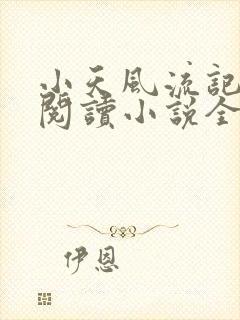 小天風流記
閱讀小說全
伊恩